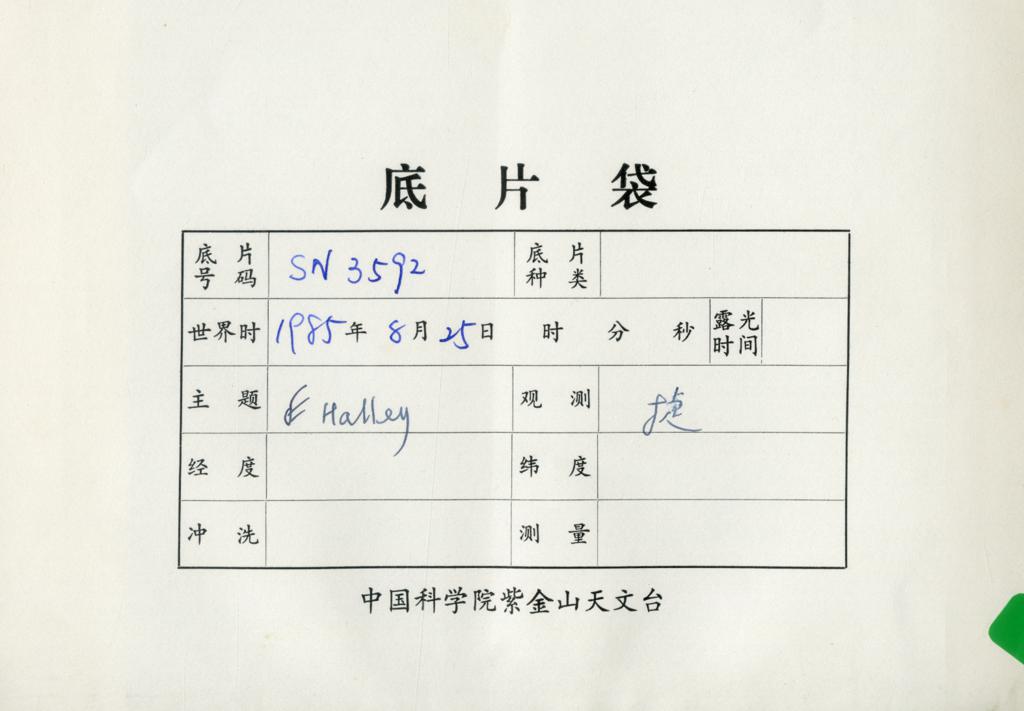 底 片 袋
底 片 号 码 SN 3592 底 片 种 类
世界时 1985年 8月 25日 时 分 秒 露光时间
主 题 Halley 观 测 捷
经 度 纬 度
冲 洗 测 量
中国科学院紫金山天文台